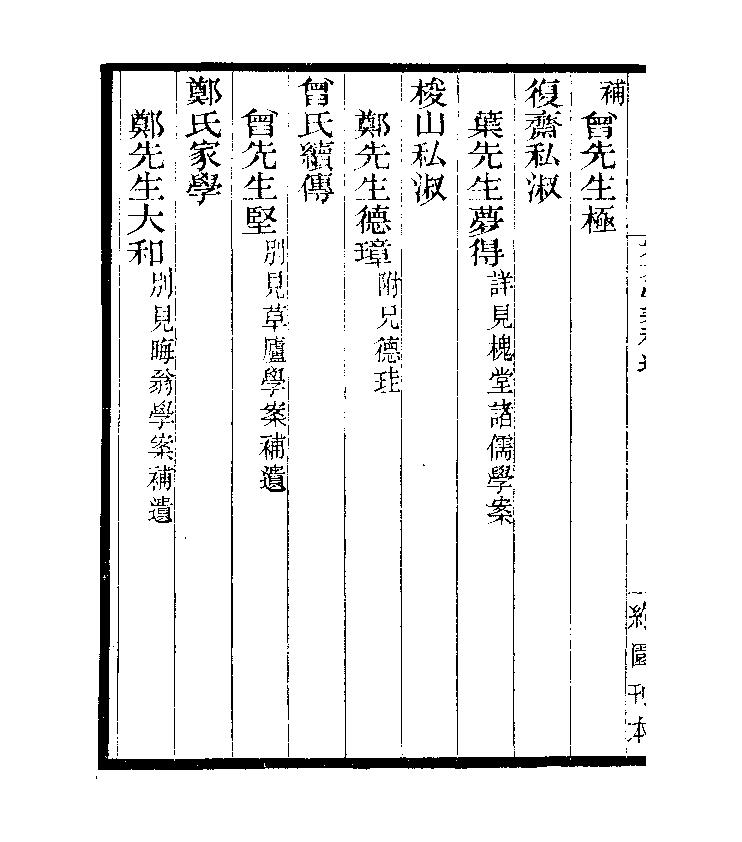 補曾先生極
復齋私淑
葉先生夢得詳見槐堂諸儒學案
梭山私淑
鄭先生德璋附兄德珪
曾氏續傳
曾先生堅別見草廬學案補遺
鄭氏家學
鄭先生大和別見晦翁學案補遺
約園刊本